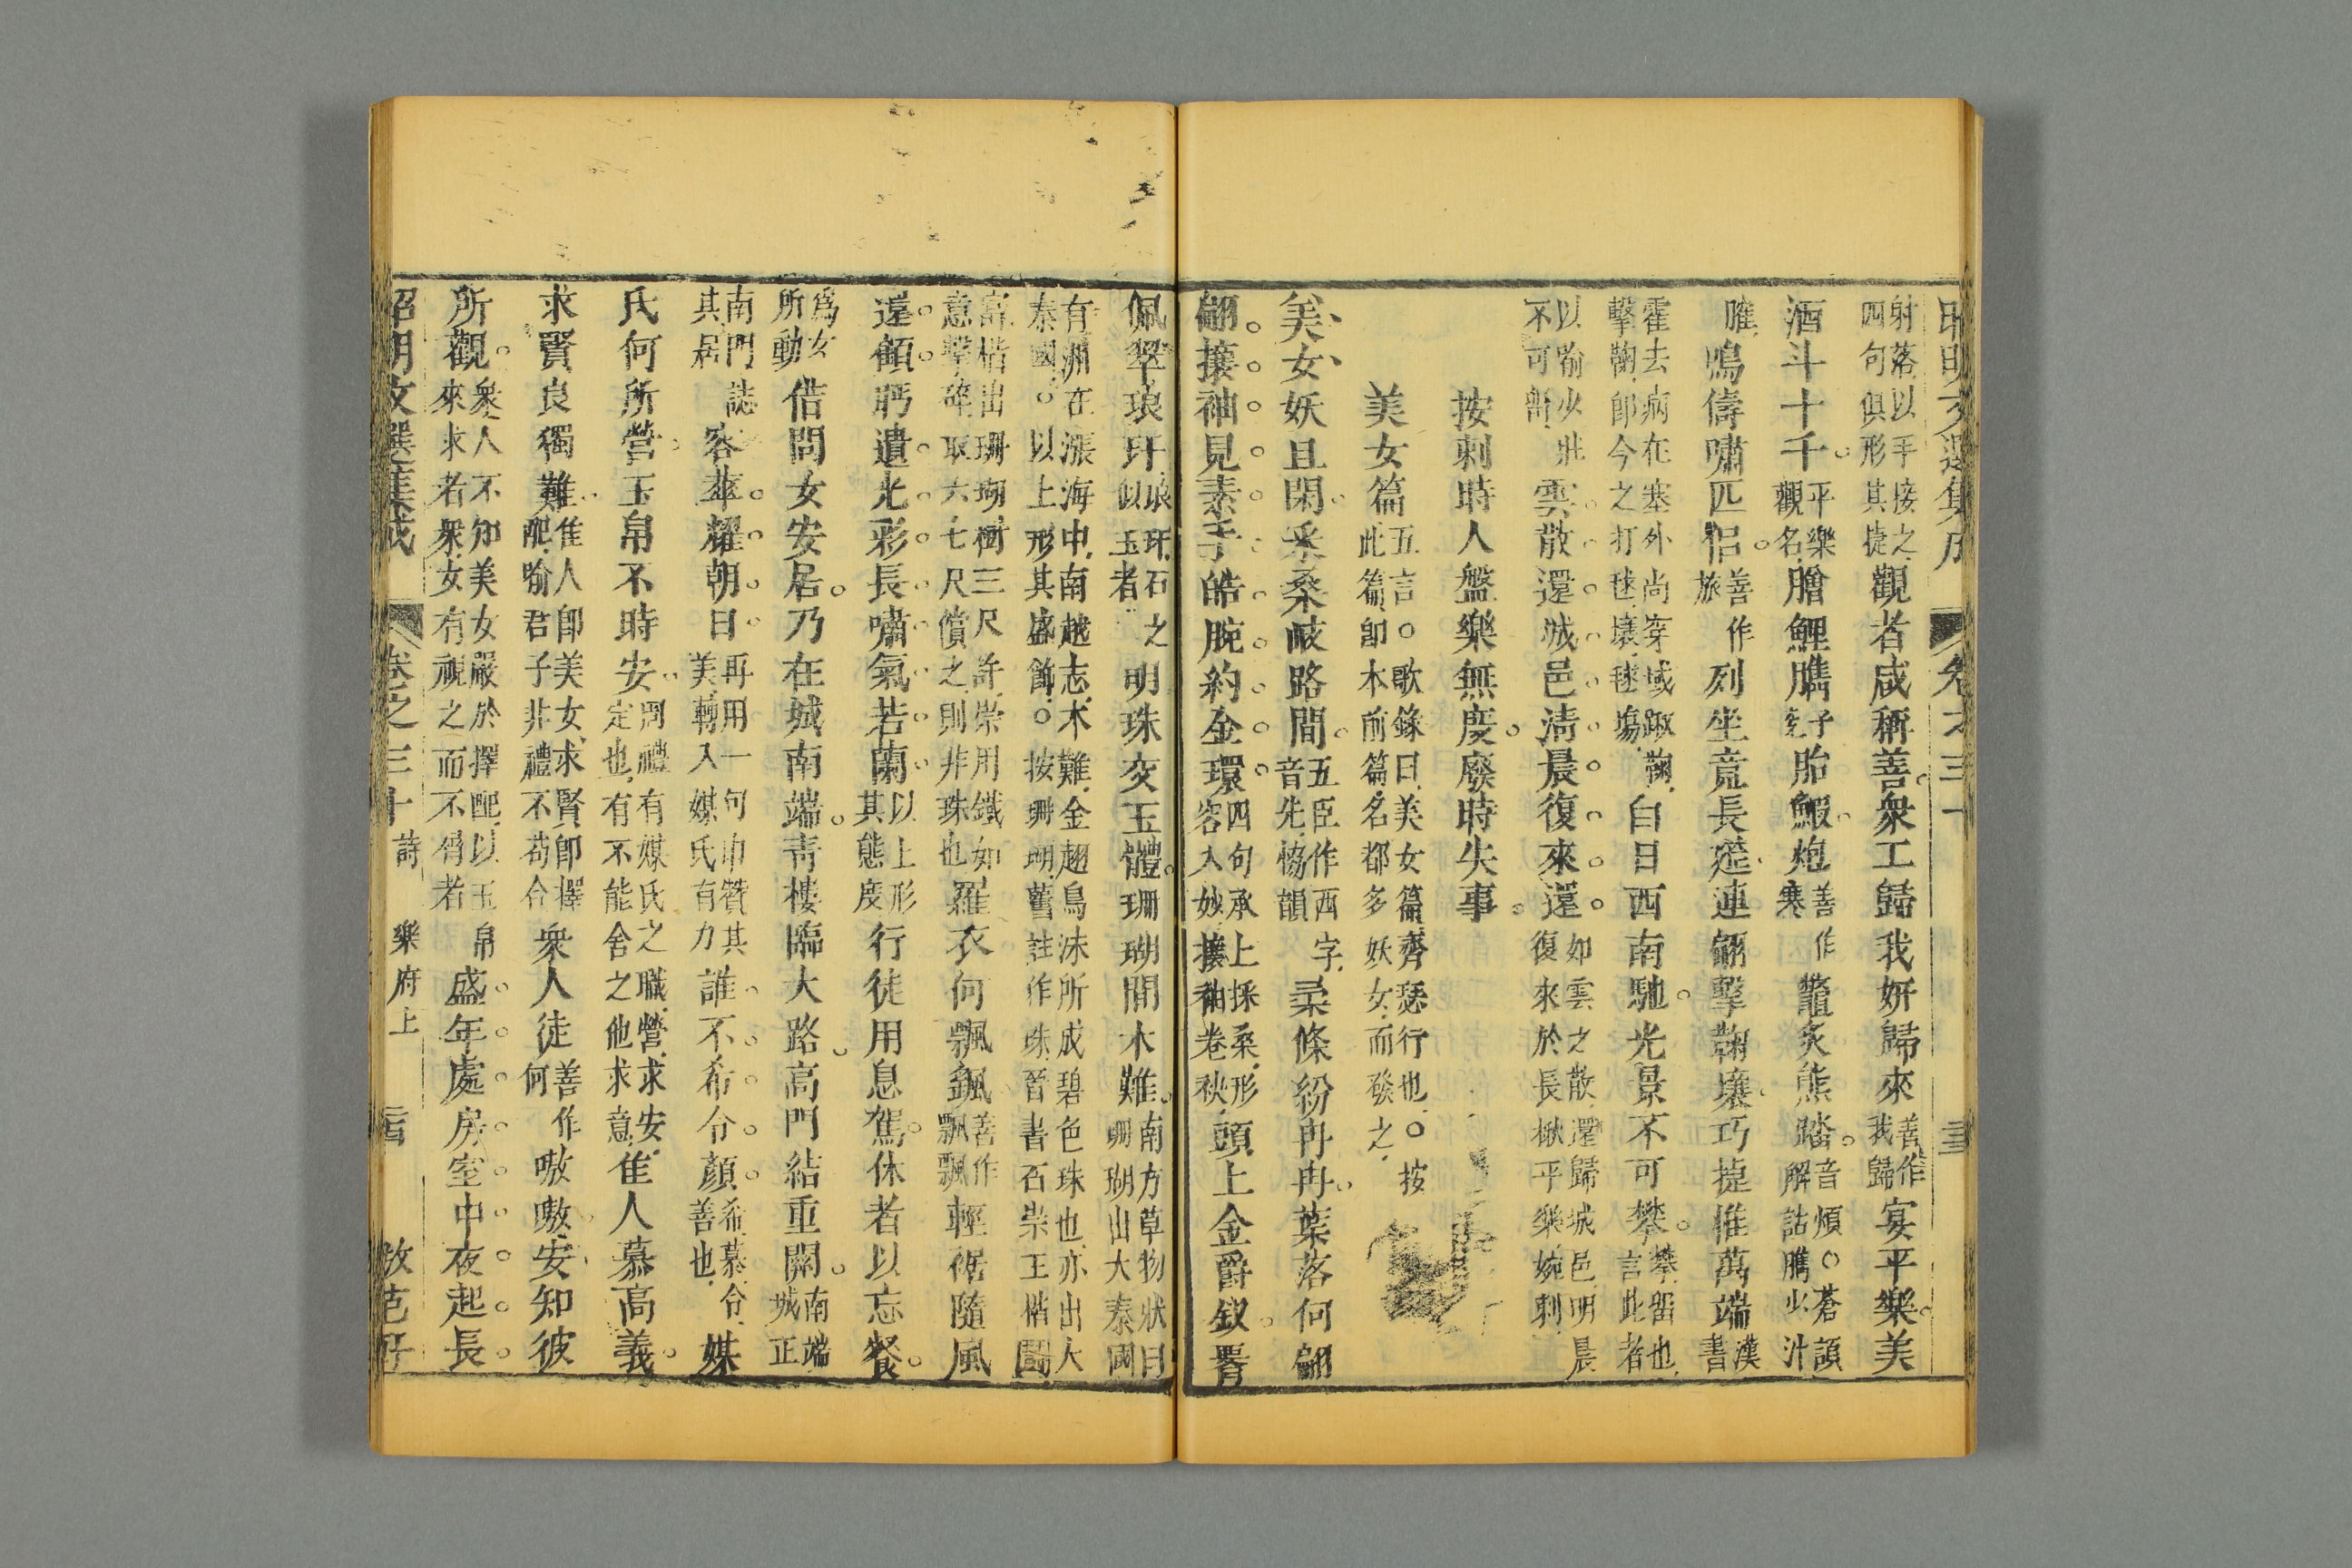 射落以手接之
四句俱形其捷 觀者咸稱善衆工歸我妍歸來 善作
我歸 宴平樂美
酒斗十千 平樂
觀名 膾鯉臇 子
兖 胎鰕炮 善作
寒 鼈炙熊蹯 音煩○蒼頡
解詁臇少汁
臛 鳴儔嘯匹侶 善作
旅 列坐竟長筵連翩擊鞠壤巧捷惟萬端 漢
書
霍去病在塞外尚穿域蹴鞠
擊鞠卽今之打毬壤毬塲 白日西南馳光景不可攀 攀留也
言此者
以喻少壯
不可暫 雲散還城邑清晨復來還 如雲之散還歸城邑明晨
復來於長楸平樂婉刺
按刺時人盤樂無度廢時失事
美女篇 五言○歌錄曰美女篇齊瑟行也○按
此篇卽本前篇名都多妖女而發之
美女妖且閑采桑岐路間 五臣作西字
音先協韻 柔條紛冉冉葉落何翩
翩攘袖見素手皓腕約金環 四句承上採桑形
容入妙攘袖卷袂 頭上金爵釵署
佩翠琅玕 琅玕石之
似玉者 明珠交玉體珊瑚間木難 南方草物狀曰
珊瑚出大秦國
有洲在漲海中南越志木難金翅鳥沫所成碧色珠也亦出大
秦國○以上形其盛飾○按珊瑚舊註作珠晉書石崇王愷鬭
富愷出珊瑚樹三尺許崇用鐵如
意擊碎取六七尺償之則非珠也 羅衣何飄飖 善作
飄飄 輕裾隨風
還顧眄遺光彩長嘯氣若蘭 以上形
其態度 行徒用息駕休者以忘餐
爲女
所動 借問女安居乃在城南端靑樓臨大路高門結重關 南端
城正
南門誌
其居 容華耀朝日 再用一句申贊其
美轉入媒氏有力 誰不希令顏 希慕令
善也 媒
氏何所營玉帛不時安 周禮有媒氏之職營求安
定也有不能舍之他求意 佳人慕高義
求賢良獨難 佳人卽美女求賢卽擇
配喻君子非禮不苟合 衆人徒 善作
何 嗷嗷安知彼
所觀 衆人不知美女嚴於擇配以玉帛
來求者衆女有視之而不屑者 盛年處房室中夜起長
昭明文選集成 卷之三十 詩 樂府上